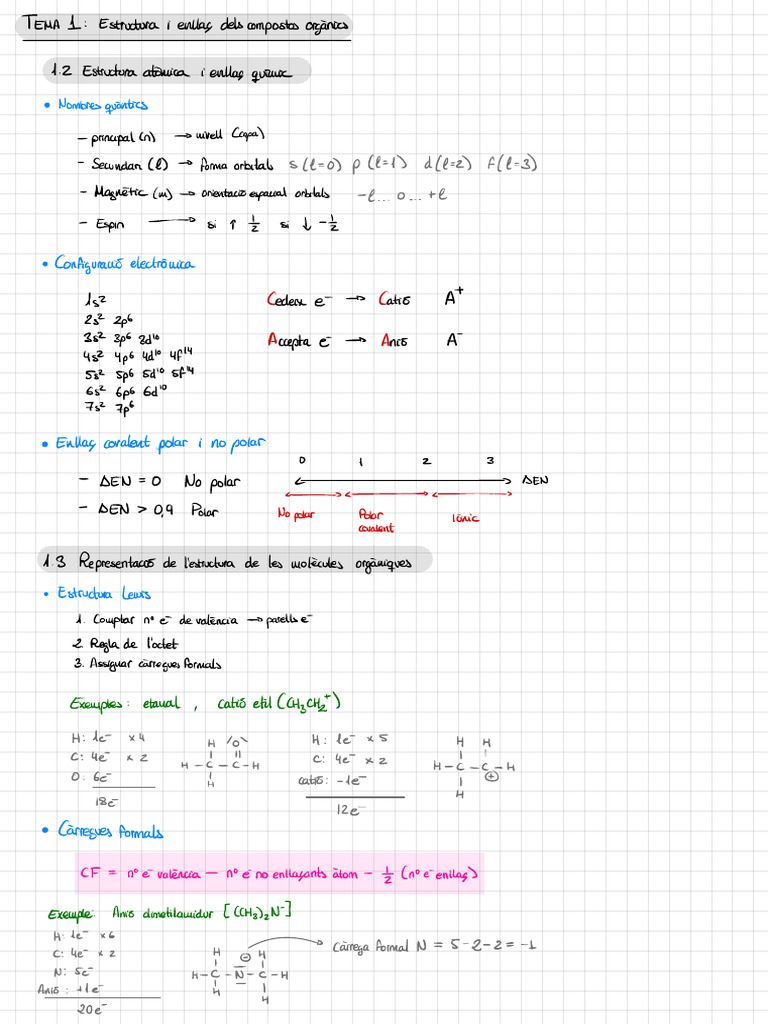 TEMA 1: Estructura i enllaç dels compostos orgànics
1.2 Estructura atòmica i enllaç químic
• Nombres quàntics
– principal (n) → nivell (capa)
– Secundari (l) → forma orbitals s (l=0) p (l=1) d (l=2) f (l=3)
– Magnètic (m) → orientació espacial orbitals -l ... 0 ... +l
– Espin → si ↑ 1/2 si ↓ -1/2
• Configuració electrònica
1s²
2s² 2p⁶
3s² 3p⁶ 3d¹⁰
4s² 4p⁶ 4d¹⁰ 4f¹⁴
5s² 5p⁶ 5d¹⁰ 5f¹⁴
6s² 6p⁶ 6d¹⁰
7s² 7p⁶
Cedeix e⁻ → Catió A⁺
Accepta e⁻ → Anió A⁻
• Enllaç covalent polar i no polar
– ΔEN = 0 No polar
– ΔEN > 0,9 Polar
0 1 2 3
ΔEN
No polar Polar covalent Iònic
1.3 Representació de l'estructura de les molècules orgàniques
• Estructura Lewis
1. Comptar nº e⁻ de valència → parells e⁻
2. Regla de l'octet
3. Assignar càrregues formals
Exemples: etanal , catió etil (CH₃CH₂⁺)
H: 1e⁻ x4
C: 4e⁻ x2
O: 6e⁻
18e⁻
H O
H – C – C – H
H
H: 1e⁻ x5
C: 4e⁻ x2
catió: -1e⁻
12e⁻
H H
H – C – C – H
⊕
H
• Càrregues formals
CF = nº e⁻ valència — nº e⁻ no enllaçants àtom – 1/2 (nº e⁻ enllaç)
Exemple: Anió dimetilamidur [(CH₃)₂N⁻]
H: 1e⁻ x6
C: 4e⁻ x2
N: 5e⁻
Anió: +1e⁻
20e⁻
H ⊖ H
H – C – N – C – H
H H
Càrrega formal N = 5-2-2 = -1